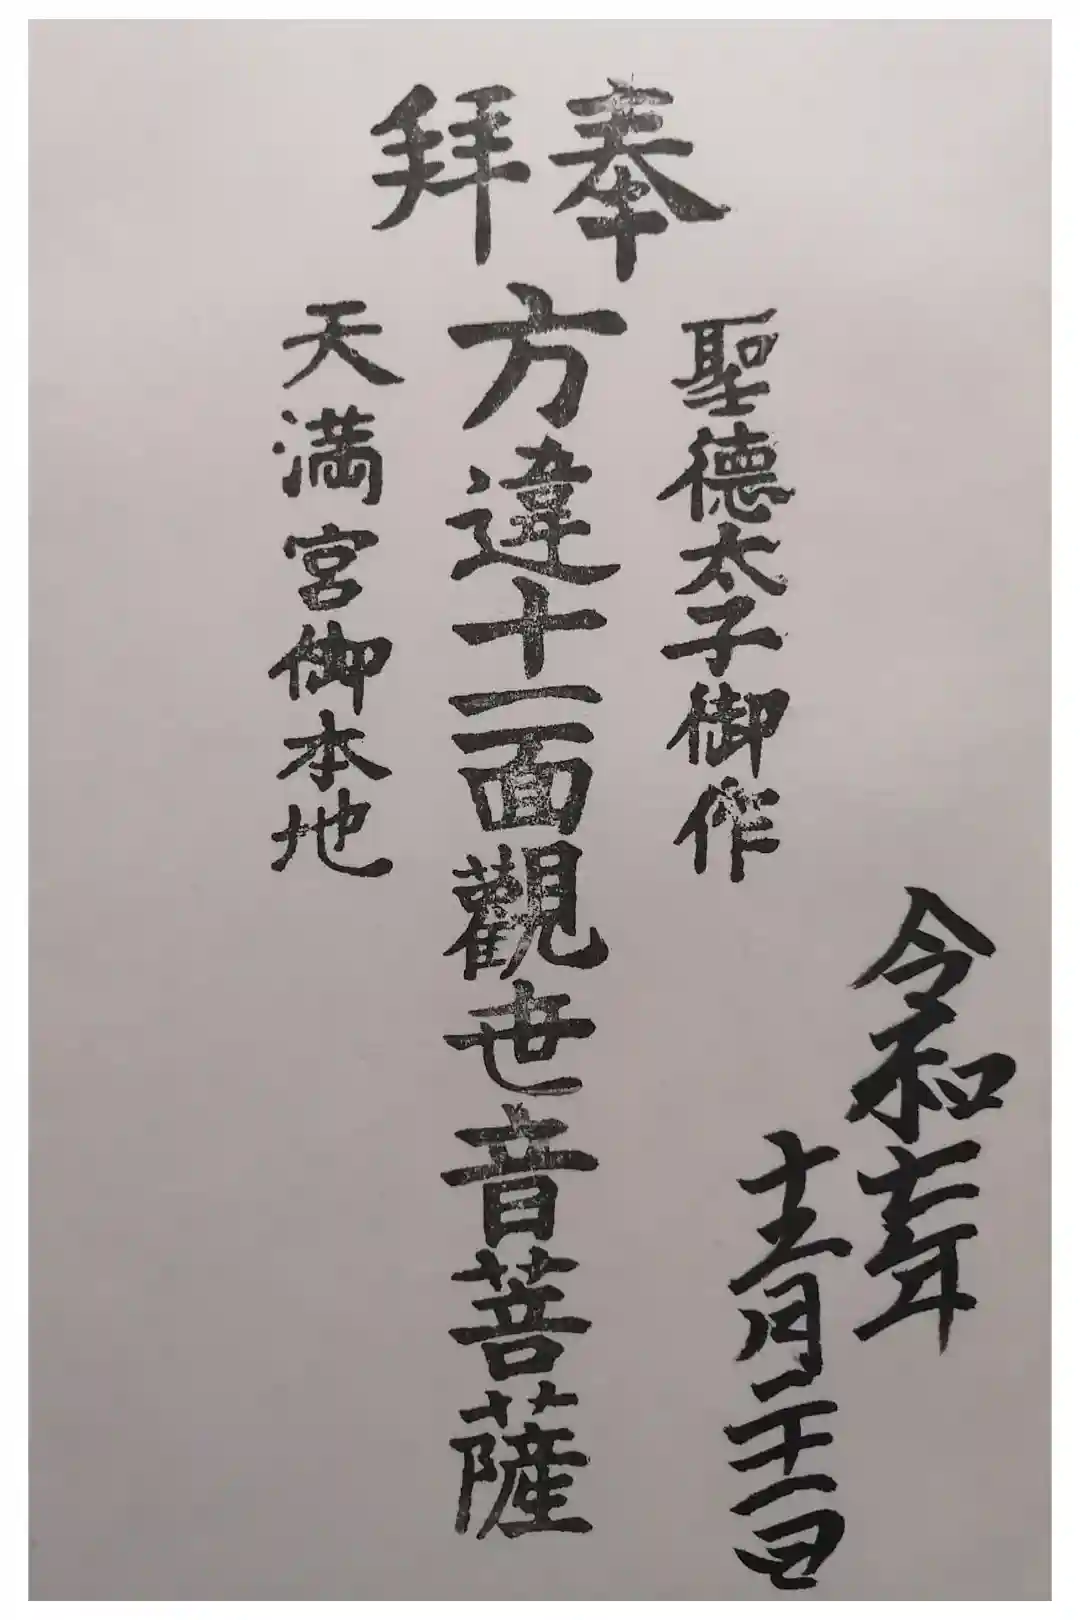 奉拝
令和年
十月二十日
聖德太子御作
方違十一面觀世音菩薩
天満宮御本地